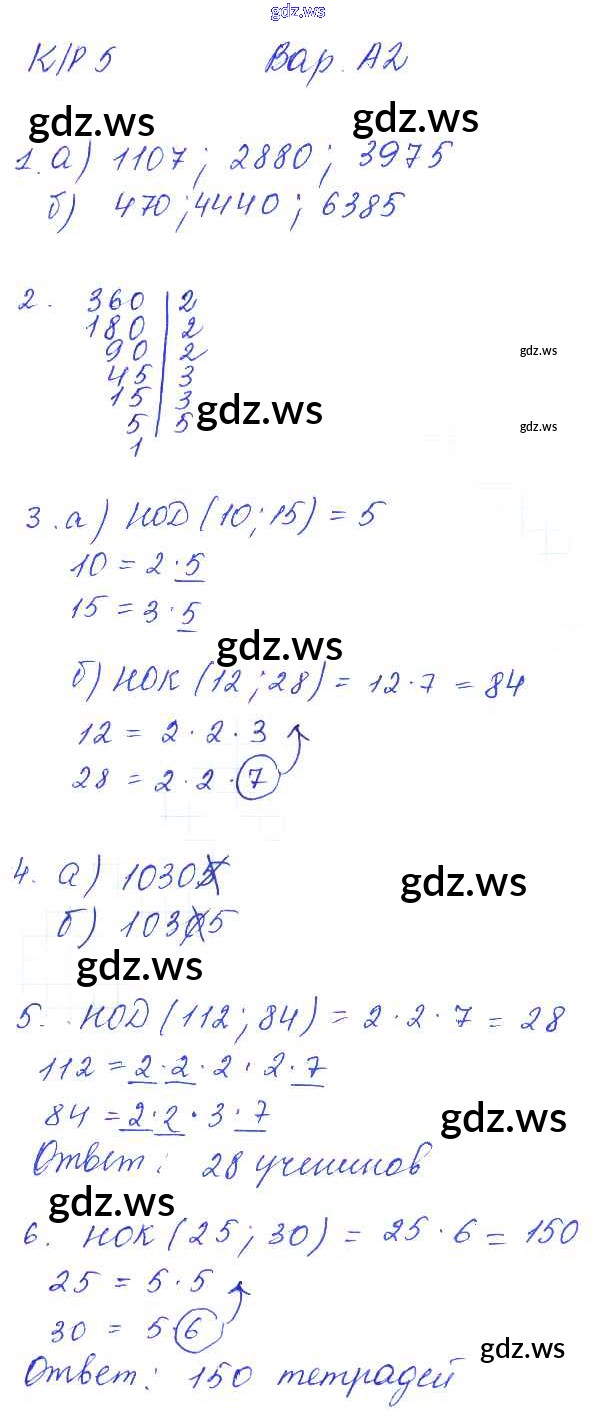 gdz.ws
К/Р 5 Вар. А2
gdz.ws gdz.ws
1. а) 1107; 2880; 3975
б) 470; 4440; 6385
2. 360 | 2
180 | 2
90 | 2
gdz.ws
45 | 3
15 | 3
gdz.ws
5 | 5
gdz.ws
1
3. а) НОД (10; 15) = 5
10 = 2 · 5
15 = 3 · 5
gdz.ws
б) НОК (12; 28) = 12 · 7 = 84
12 = 2 · 2 · 3
28 = 2 · 2 · 7
4. а) 10305
gdz.ws
б) 10305
gdz.ws
5. НОД (112; 84) = 2 · 2 · 7 = 28
112 = 2 · 2 · 2 · 2 · 7
84 = 2 · 2 · 3 · 7
gdz.ws
Ответ: 28 учеников
gdz.ws
6. НОК (25; 30) = 25 · 6 = 150
25 = 5 · 5
30 = 5 · 6
gdz.ws
Ответ: 150 тетрадей